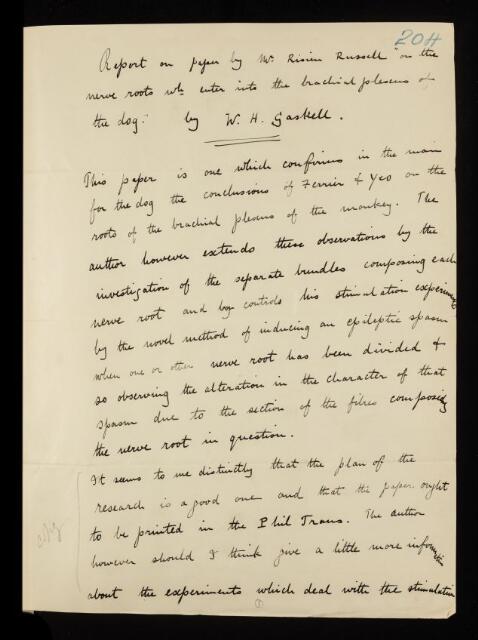 204
Report on paper by Mr Risien Russell "on the
nerve roots wh. enter into the brachial plexus of
the dog." by W. H. Gaskell.
This paper is one which confirms in the main
for the dog the conclusions of Ferrier & Yeo on the
roots of the brachial plexus of the monkey. The
author however extends these observations by the
investigation of the separate bundles composing each
nerve root and controls his stimulation experiments
by the novel method of inducing an epileptic spasm
when one or other nerve root has been divided &
so observing the alteration in the character of that
spasm due to the section of the fibres composing
the nerve root in question.
It seems to me distinctly that the plan of the
research is a good one and that the paper ought
to be printed in the Phil Trans. The author
however should I think give a little more information
about the experiments which deal with the stimulation